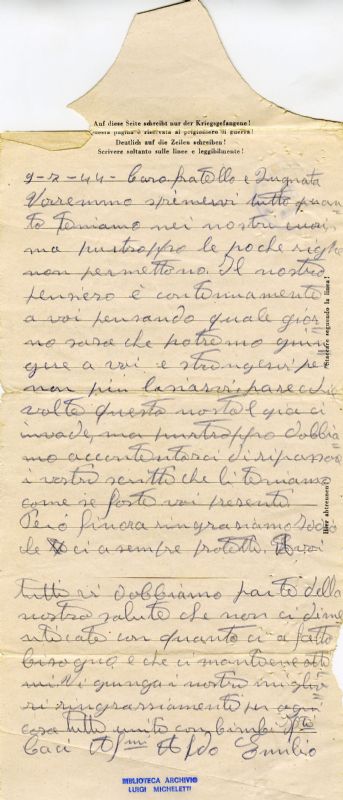 Auf diese Seite schreibt nur der Kriegsgefangene!
Questa pagina è riservata al prigioniero di guerra!
Deutlich auf die Zeilen schreiben!
Scrivere soltanto sulle linee e leggibilmente!
9-7-44- Caro fratello e
Vorremmo spremervi tutto quan
to teniamo nei nostri cuori
ma purtroppo le poche righe
non permettono. Il nostro
pensiero è contenuamente
a voi pensando quale gior
no sara che potremo giun
gere a voi e strongervi per
non più lasiarvi, pare die
volte questa nostalgia ci
invade, ma purtroppo dobbia
mo accontentarci di ripassare
i vostri scritti che li teniamo
come se foste voi presente
Però finora ringrasiamo Iddio
che ci a sempre protetti. A voi
tutti vi dobbiamo parte della
nostra salute che non ci dime
nticate con quanto ci a fatto
bisogno e che ci mantiene otti
mi. Vi giunga i nostri miglio
ri ringrassiamente per ogni
cosa tutti unito con bimbi
Baci Aff.mi Aldo Emilio
Staccare seguendo la linea!
Hier abtrennen!
BIBLIOTECA ARCHIVIO
LUIGI MICHELETTI